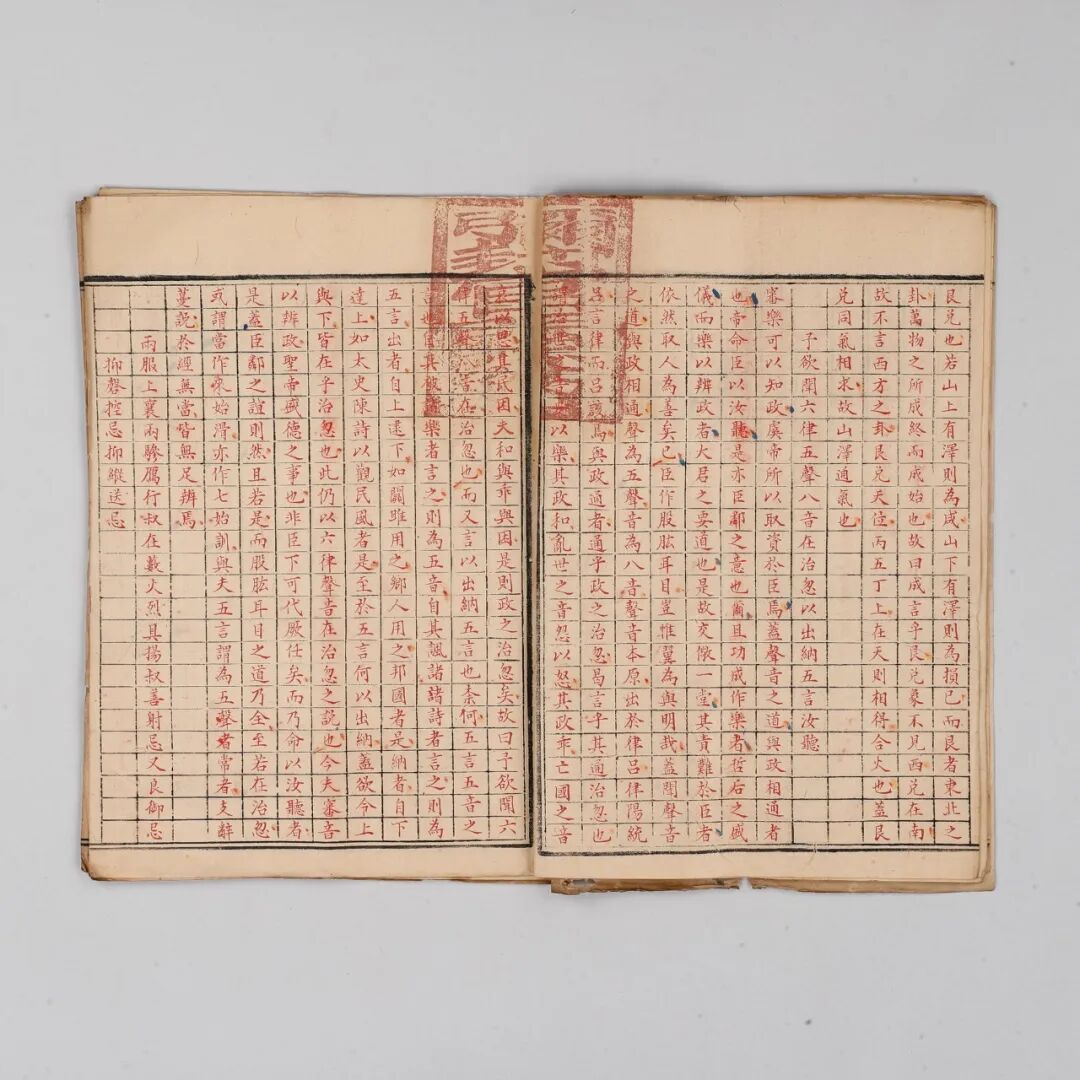 艮兌也若山上有澤則為咸山下有澤則為損已而艮者東北之
卦萬物之所成終而成始也故曰成言乎艮兌象不見西兌在南
故不言西方之卦艮兌天位丙五丁上在天則相得合火也蓋艮
兌同氣相求故山澤通氣也
予欲聞六律五聲八音在治忽以出納五言汝聽
審樂可以知政虞帝所以取資於臣焉蓋聲音之道與政相通者
也帝命臣以汝聽是亦臣鄰之意也爾且功成作樂者哲后之盛
儀而樂以辨政者大君之要道也是故交儆一堂其責難於臣者
依然取人為善矣已臣作股肱耳目豈惟翼為與明哉蓋聞聲音
之道與政相通聲為五聲音為八音聲音本原出於律呂律陽統
呂言律而呂該焉與政通者通乎政之治忽曷言乎其通治忽也
治世之音以樂其政和亂世之音怨以怒其政乖亡國之音
哀以思其民困夫和與乖與困是則政之治忽矣故曰予欲聞六
律五聲八音在治忽也而又言以出納五言也柰何五言五音之
言也自其被諸樂者言之則為五音自其諷諸詩者言之則為
五言出者自上達下如關雎用之鄉人用之邦國者是納者自下
達上如太史陳詩以觀民風者是至於五言何以出納蓋欲令上
與下皆在乎治忽也此仍以六律聲音在治忽之說也今夫審音
以辨政聖帝盛德之事也非臣下可代厥任矣而乃命以汝聽者
是蓋臣鄰之誼則然且若是而股肱耳目之道乃全至若在治忽
或謂當作來始滑亦作七始訓與夫五言謂為五聲者常者支辭
蔓說於經無當皆無足辨焉
兩服上襄兩驂雁行叔在藪火烈具揚叔善射忌又良御忌
抑磬控忌抑縱送忌